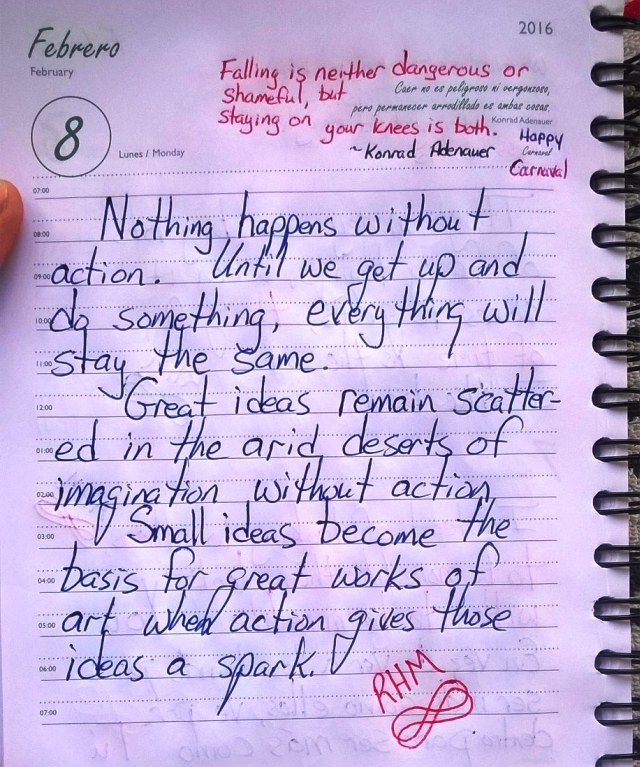 2016
Febrero
February
8
Lunes / Monday
Falling is neither dangerous or
shameful, but
Caer no es peligroso ni vergonzoso,
pero permanecer arrodillado es ambas cosas.
Konrad Adenauer
staying on your knees is both.
~Konrad Adenauer
Happy
Carnaval
Carnaval
07:00
08:00 Nothing happens without
09:00 action. Until we get up and
10:00 do something, everything will
11:00 stay the same.
12:00 Great ideas remain scatter-
01:00 ed in the arid deserts of
02:00 imagination without action.
03:00 Small ideas become the
04:00 basis for great works of
05:00 art when action gives those
06:00 ideas a spark.
07:00
RHM